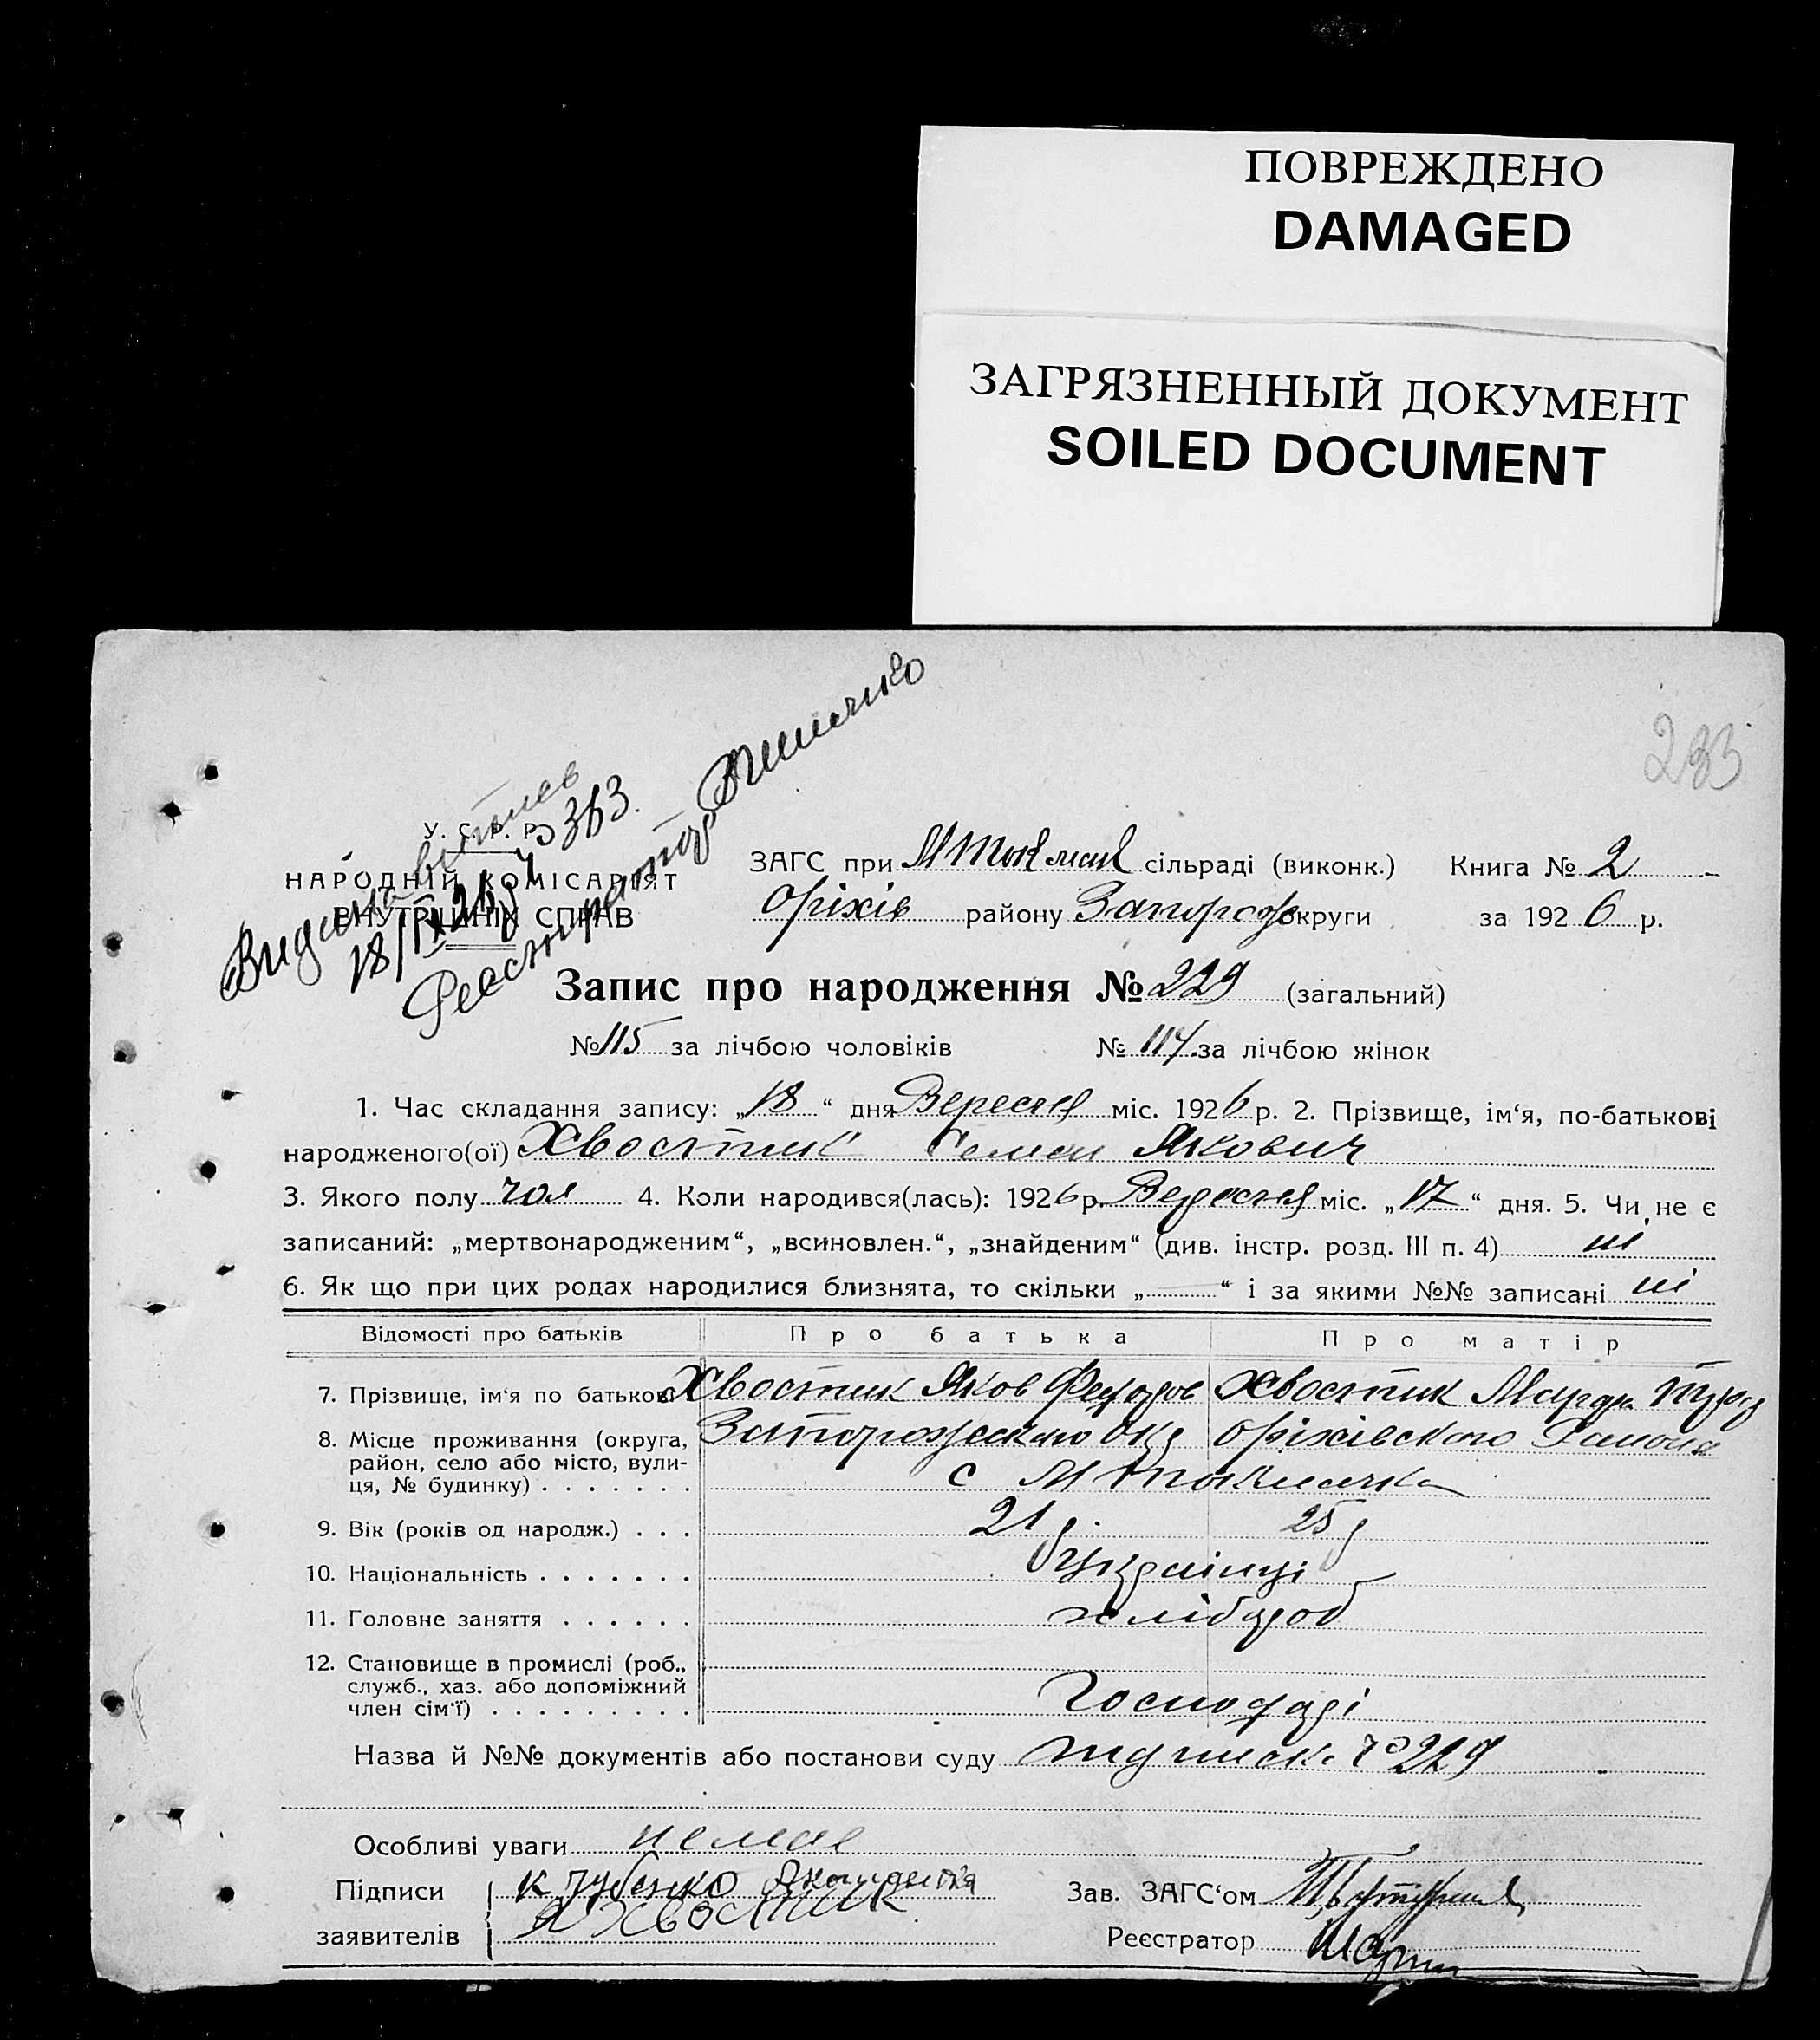 ПОВРЕЖДЕНО
DAMAGED
ЗАГРЯЗНЕННЫЙ ДОКУМЕНТ
SOILED DOCUMENT
233
Видана
18/IX 26 р № 313.
Реєстратор
У. С. Р. Р.
НАРОДНІЙ КОМІСАРІЯТ
ВНУТРІШНІХ СПРАВ
ЗАГС при М Токмач сільраді (виконк.) Книга № 2
Оріхів району Запорож округи за 1926 р.
Запис про народження № 229 (загальний)
№ 115 за лічбою чоловіків № 114 за лічбою жінок
1. Час складання запису: „18“ дня Вересня міс. 1926 р. 2. Прізвище, ім‘я, по-батькові
народженого(ої) Хвостик Семен Якович
3. Якого полу чол 4. Коли народився(лась): 1926 р. Вересня міс. „17“ дня. 5. Чи не є
записаний: „мертвонародженим“, „всиновлен.“, „знайденим“ (див. інстр. розд. III п. 4) ні
6. Як що при цих родах народилися близнята, то скільки „—“ і за якими №№ записані ні
Відомості про батьків Про батька Про матір
7. Прізвище, ім‘я по батькові Хвостик Яков Федоров Хвостик
8. Місце проживання (округа, Запорожського Окр Оріхівського Района
район, село або місто, вули-
ця, № будинку) . . . . . . . с М Токмачка
9. Вік (років од народж.) . . . 21 р. 25 р
10. Національність . . . . . . . Українці
11. Головне заняття . . . . . . хлібороб
12. Становище в промислі (роб.,
служб., хаз. або допоміжний
член сім‘ї) . . . . . . . . . Господарі
Назва й №№ документів або постанови суду підписка № 229
Особливі уваги немає
Підписи К Зубенко
заявителів Я Хвостик
Зав. ЗАГС‘ом
Реєстратор